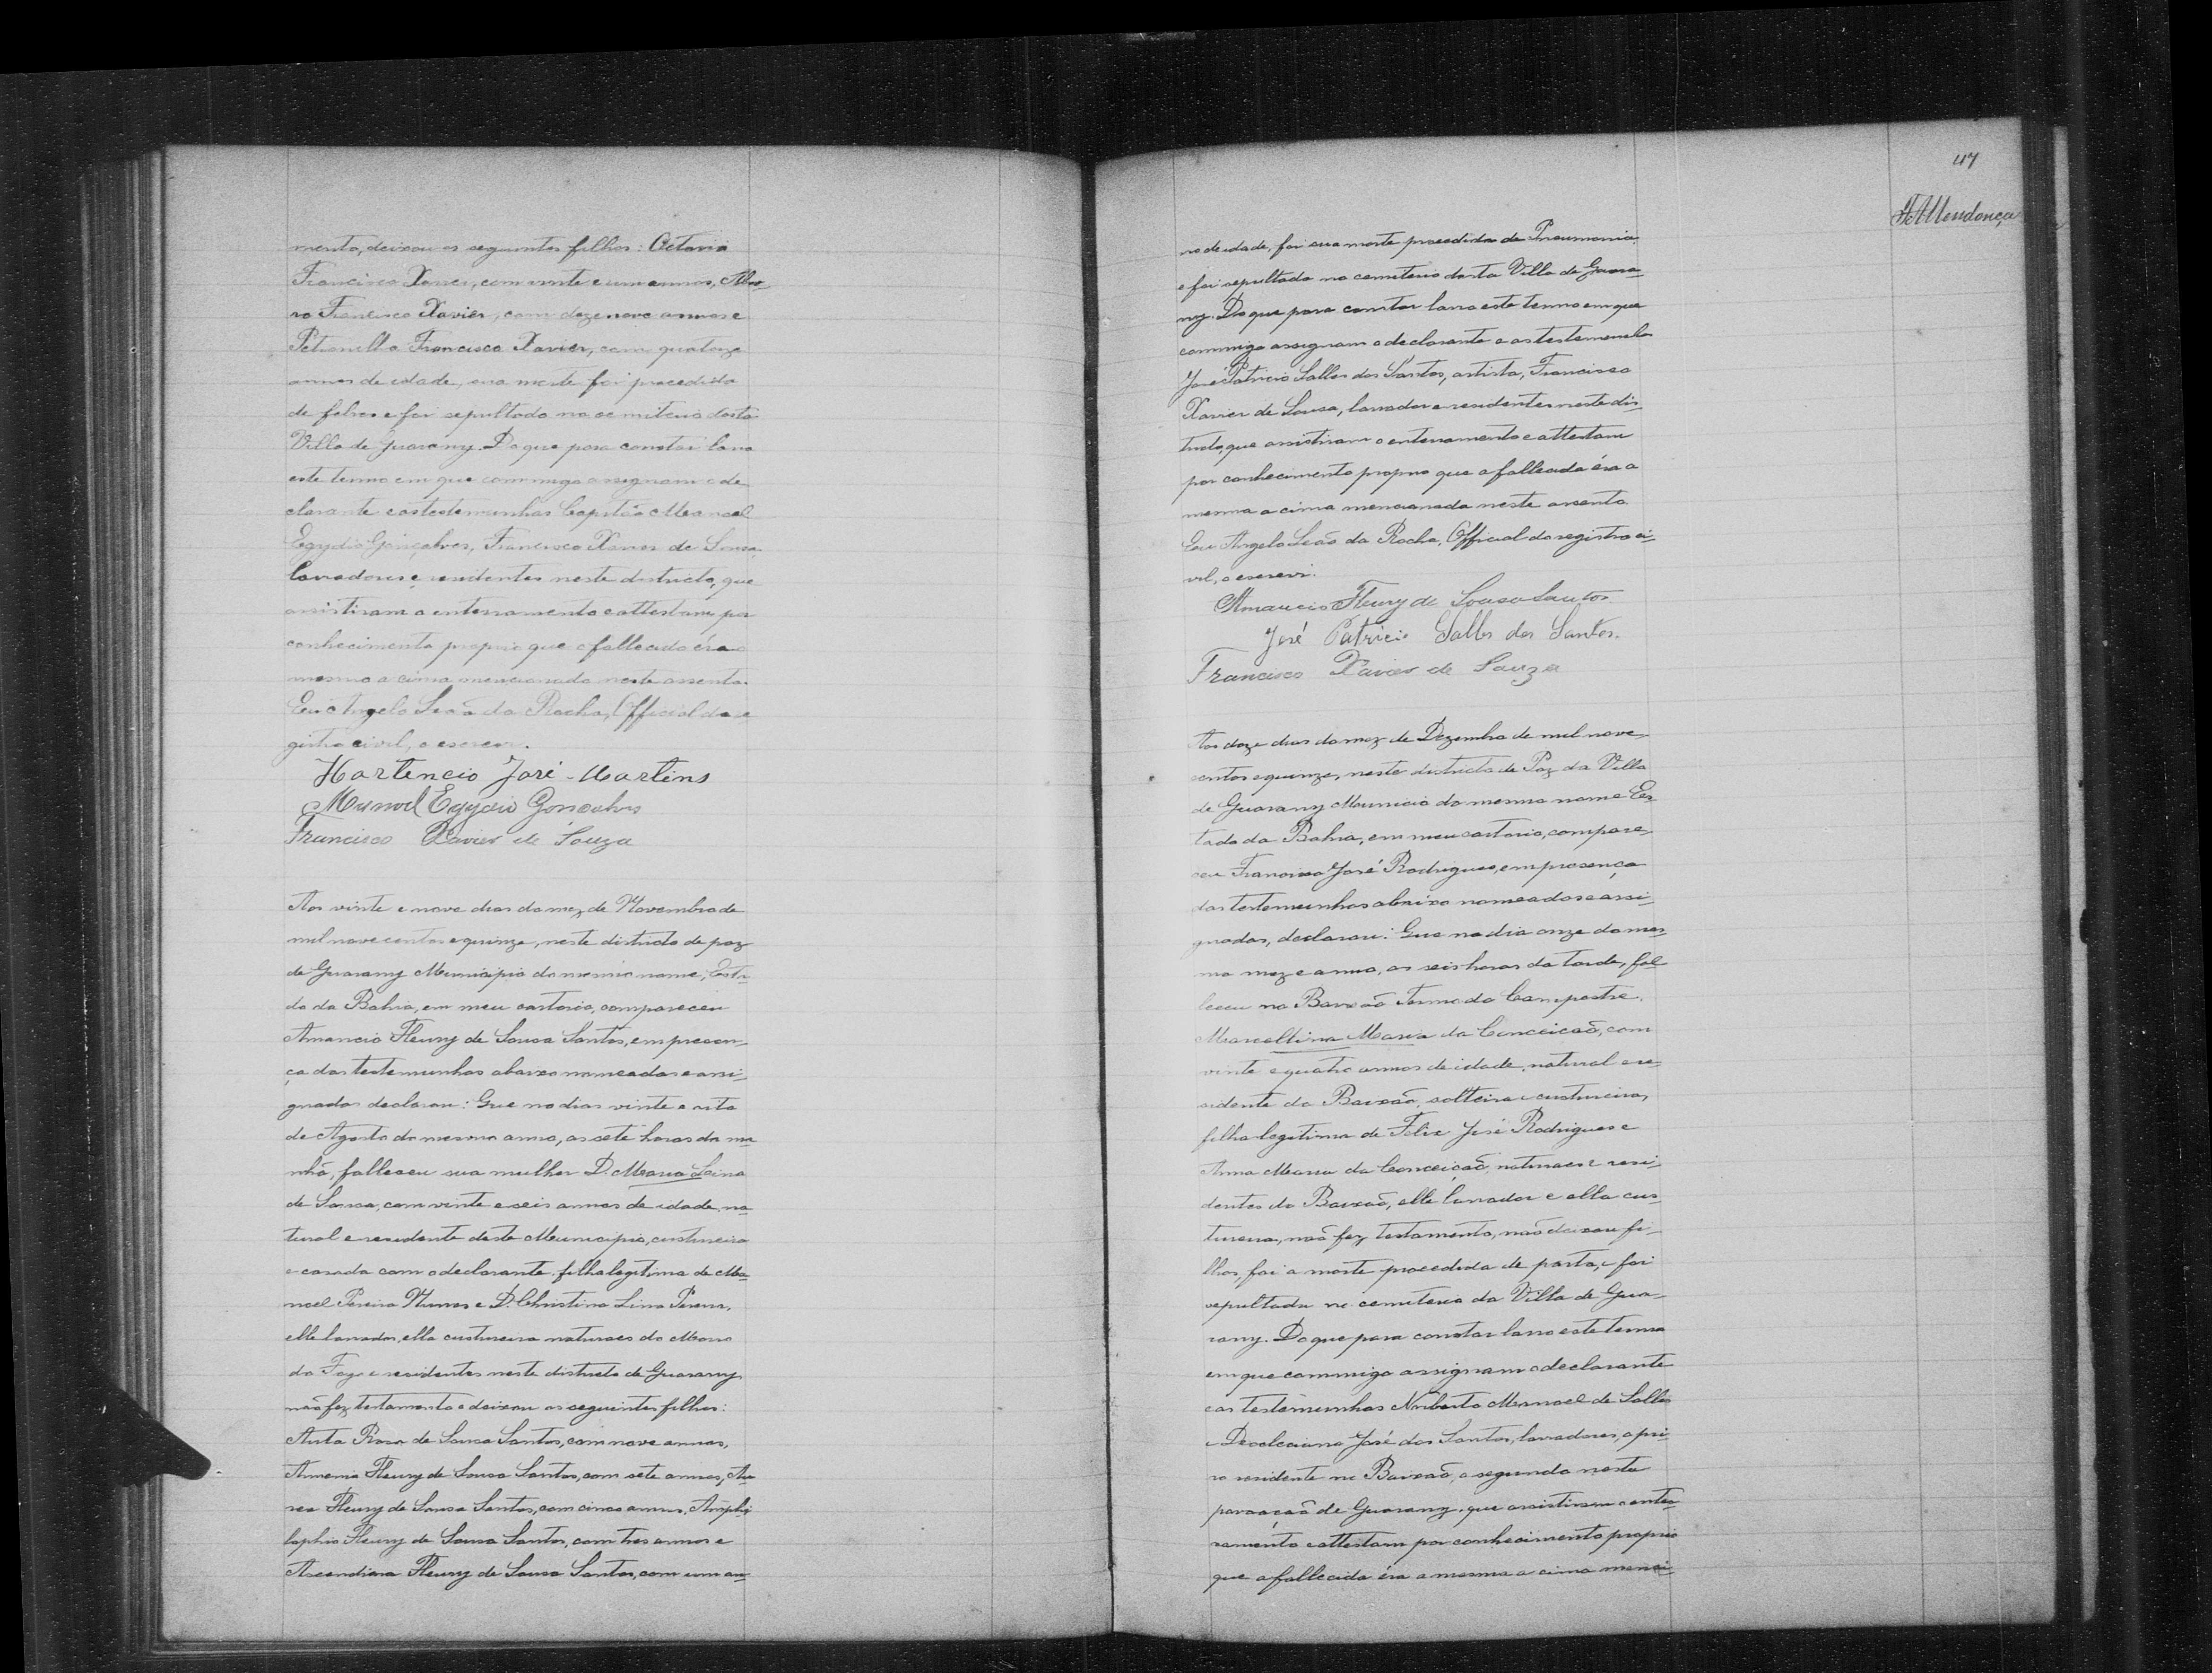 mento, deixou os seguintes filhos: Octavia
Francisca Xavier, com vinte e um annos, Alva-
ro Francisco Xavier, com dezenove annos e
Petronilla Francisca Xavier, com quatorze
annos de edade, sua morte foi procedida
de febres e foi sepultado no cemiterio desta
Villa de Guarany. Do que para constar lavro
este termo em que commigo assignam o de-
clarante e as testemunhas Capitão Manoel
Egydio Gonçalves, Francisco Xavier de Sousa,
lavradores e residentes neste districto, que
assistiram o enterramento e attestam por
conhecimento proprio que o fallecido éra o
mesmo a cima mencionado neste assento.
Eu Angelo Leão da Rocha, Official do re-
gistro civil, o escrevi.
Hortencio José Martins
Manoel Egydio Gonsalves
Francisco Xavier de Souza
Aos vinte e nove dias do mez de Novembro de
mil nove centos e quinze, neste districto de paz
de Guarany Municipio do mesmo nome, Esta-
do da Bahia, em meu cartorio, compareceu
Amancio Fleury de Sousa Santos, em presen-
ça das testemunhas abaixo nomeadas e assi-
gnadas declarou: Que no dia vinte e oito
de Agosto do mesmo anno, as sete horas da ma-
nhã, falleceu sua mulher D. Maria Lina
de Sousa, com vinte e seis annos de idade, na-
tural e residente deste Municipio, custureira
e casada com o declarante, filha legitima de Ma-
noel Pereira Nunes e D. Christina Lina Pereira,
elle lavrador, ella custureira naturaes do Morro
do Fogo e residentes neste districto de Guarany
não fez testamento e deixou os seguintes filhos:
Anta Rosa de Sousa Santos, com nove annos,
Armenia Fleury de Sousa Santos, com sete annos, Au-
rea Fleury de Sousa Santos, com cinco annos, Amphi-
lophio Fleury de Sousa Santos, com tres annos e
Ascendina Fleury de Sousa Santos, com um an-
47
FAMendonça
no de idade, foi sua morte procedida de Pneumonia
e foi sepultada no cemiterio desta Villa de Guara-
ny. Do que para constar lavro este termo em que
commigo assignam o declarante e as testemunhas
José Patricio Salles dos Santos, artista, Francisco
Xavier de Sousa, lavrador e residentes neste dis-
tricto, que assistiram o enterramento e attestam
por conhecimento proprio que a fallecida éra a
mesma a cima mencionada neste assento.
Eu Angelo Leão da Rocha, Official do registro ci-
vil, o escrevi.
Amancio Fleury de Sousa Santos
José Patricio Salles dos Santos.
Francisco Xavier de Souza
Aos doze dias do mez de Dezembro de mil nove-
centos e quinze, neste districto de Paz da Villa
de Guarany Municio do mesmo nome Es-
tado da Bahia, em meu cartorio, compare-
ceu Francisco José Rodrigues, em presença
das testemunhas abaixo nomeadas e assi-
gnadas, declarou: Que no dia onze do mes-
mo mez e anno, as seis horas da tarde, fal-
leceu no Baixão Termo do Campestre,
Marcellina Maria da Conceição, com
vinte e quatro annos de idade, natural e re-
sidente do Baixão, solteira e custureira,
filha legitima de Felix José Rodrigues e
Anna Maria da Conceição, naturaes e resi-
dentes do Baixão, elle lavrador e ella cus-
tureira, não fez testamento, não deixou fi-
lhos, foi a morte procedida de parto, e foi
sepultada no cemiterio da Villa de Gua-
rany. Do que para constar lavro este termo
em que commigo assignam o declarante
e as testemunhas Noberto Manoel de Salles
e Deocleciano José dos Santos, lavradores, o pri-
ro residente no Baixão, o segundo nesta
povoação de Guarany, que assistiram o enter-
ramento e attestam por conhecimento proprio
que a fallecida éra a mesma a cima menci-